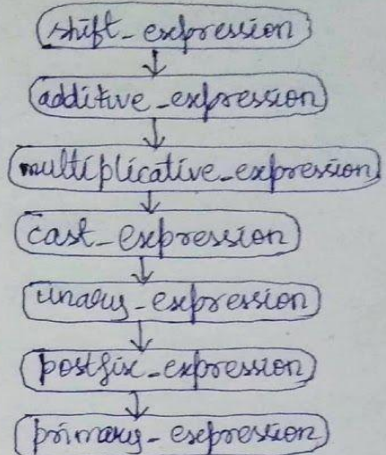 shift_expression
additive_expression
multiplicative_expression
cast_expression
unary_expression
postfix_expression
primary_expression